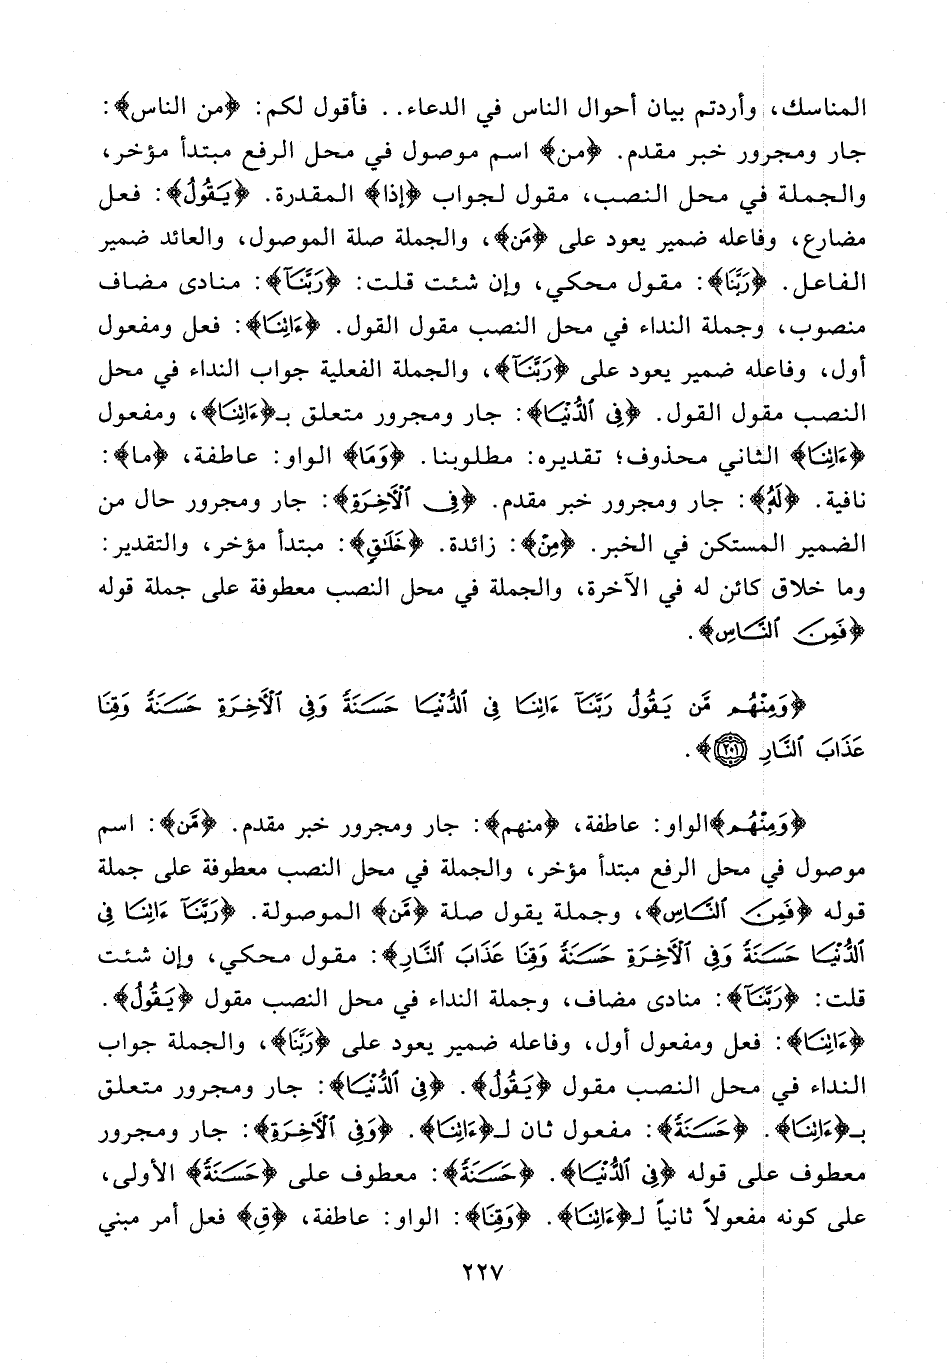 المناسك، وأردتم بيان أحوال الناس في الدعاء.. فأقول لكم: ﴿من الناس﴾:
جار ومجرور خبر مقدم. ﴿من﴾ اسم موصول في محل الرفع مبتدأ مؤخر،
والجملة في محل النصب، مقول لجواب ﴿إذا﴾ المقدرة. ﴿يَقُولُ﴾: فعل
مضارع، وفاعله ضمير يعود على ﴿مَن﴾، والجملة صلة الموصول، والعائد ضمير
الفاعل. ﴿رَبَّنَا﴾: مقول محكي، وإن شئت قلت: ﴿رَبَّنَآ﴾: منادى مضاف
منصوب، وجملة النداء في محل النصب مقول القول. ﴿ءَاتِنَا﴾: فعل ومفعول
أول، وفاعله ضمير يعود على ﴿رَبَّنَآ﴾، والجملة الفعلية جواب النداء في محل
النصب مقول القول. ﴿فِى ٱلدُّنْيَا﴾: جار ومجرور متعلق بـ﴿ءَاتِنَا﴾، ومفعول
﴿ءَاتِنَا﴾ الثاني محذوف؛ تقديره: مطلوبنا. ﴿وَمَا﴾ الواو: عاطفة، ﴿ما﴾:
نافية. ﴿لَهُۥ﴾: جار ومجرور خبر مقدم. ﴿فِى ٱلْأَخِرَةِ﴾: جار ومجرور حال من
الضمير المستكن في الخبر. ﴿مِنْ﴾: زائدة. ﴿خَلَٰقٍ﴾: مبتدأ مؤخر، والتقدير:
وما خلاق كائن له في الآخرة، والجملة في محل النصب معطوفة على جملة قوله
﴿فَمِنَ ٱلنَّاسِ﴾.
﴿وَمِنْهُم مَّن يَقُولُ رَبَّنَآ ءَاتِنَا فِى ٱلدُّنْيَا حَسَنَةً وَفِى ٱلْأَخِرَةِ حَسَنَةً وَقِنَا
عَذَابَ ٱلنَّارِ ٢٠١﴾.
﴿وَمِنْهُم﴾الواو: عاطفة، ﴿منهم﴾: جار ومجرور خبر مقدم. ﴿مَّن﴾: اسم
موصول في محل الرفع مبتدأ مؤخر، والجملة في محل النصب معطوفة على جملة
قوله ﴿فَمِنَ ٱلنَّاسِ﴾، وجملة يقول صلة ﴿مَّن﴾ الموصولة. ﴿رَبَّنَآ ءَاتِنَا فِى
ٱلدُّنْيَا حَسَنَةً وَفِى ٱلْأَخِرَةِ حَسَنَةً وَقِنَا عَذَابَ ٱلنَّارِ﴾: مقول محكي، وإن شئت
قلت: ﴿رَبَّنَآ﴾: منادى مضاف، وجملة النداء في محل النصب مقول ﴿يَقُولُ﴾.
﴿ءَاتِنَا﴾: فعل ومفعول أول، وفاعله ضمير يعود على ﴿رَبَّنَا﴾، والجملة جواب
النداء في محل النصب مقول ﴿يَقُولُ﴾. ﴿فِى ٱلدُّنْيَا﴾: جار ومجرور متعلق
بـ﴿ءَاتِنَا﴾. ﴿حَسَنَةً﴾: مفعول ثان لـ﴿ءَاتِنَا﴾. ﴿وَفِى ٱلْأَخِرَةِ﴾: جار ومجرور
معطوف على قوله ﴿فِى ٱلدُّنْيَا﴾. ﴿حَسَنَةً﴾: معطوف على ﴿حَسَنَةً﴾ الأولى،
على كونه مفعولاً ثانياً لـ﴿ءَاتِنَا﴾. ﴿وَقِنَا﴾: الواو: عاطفة، ﴿قِ﴾ فعل أمر مبني
٢٢٧